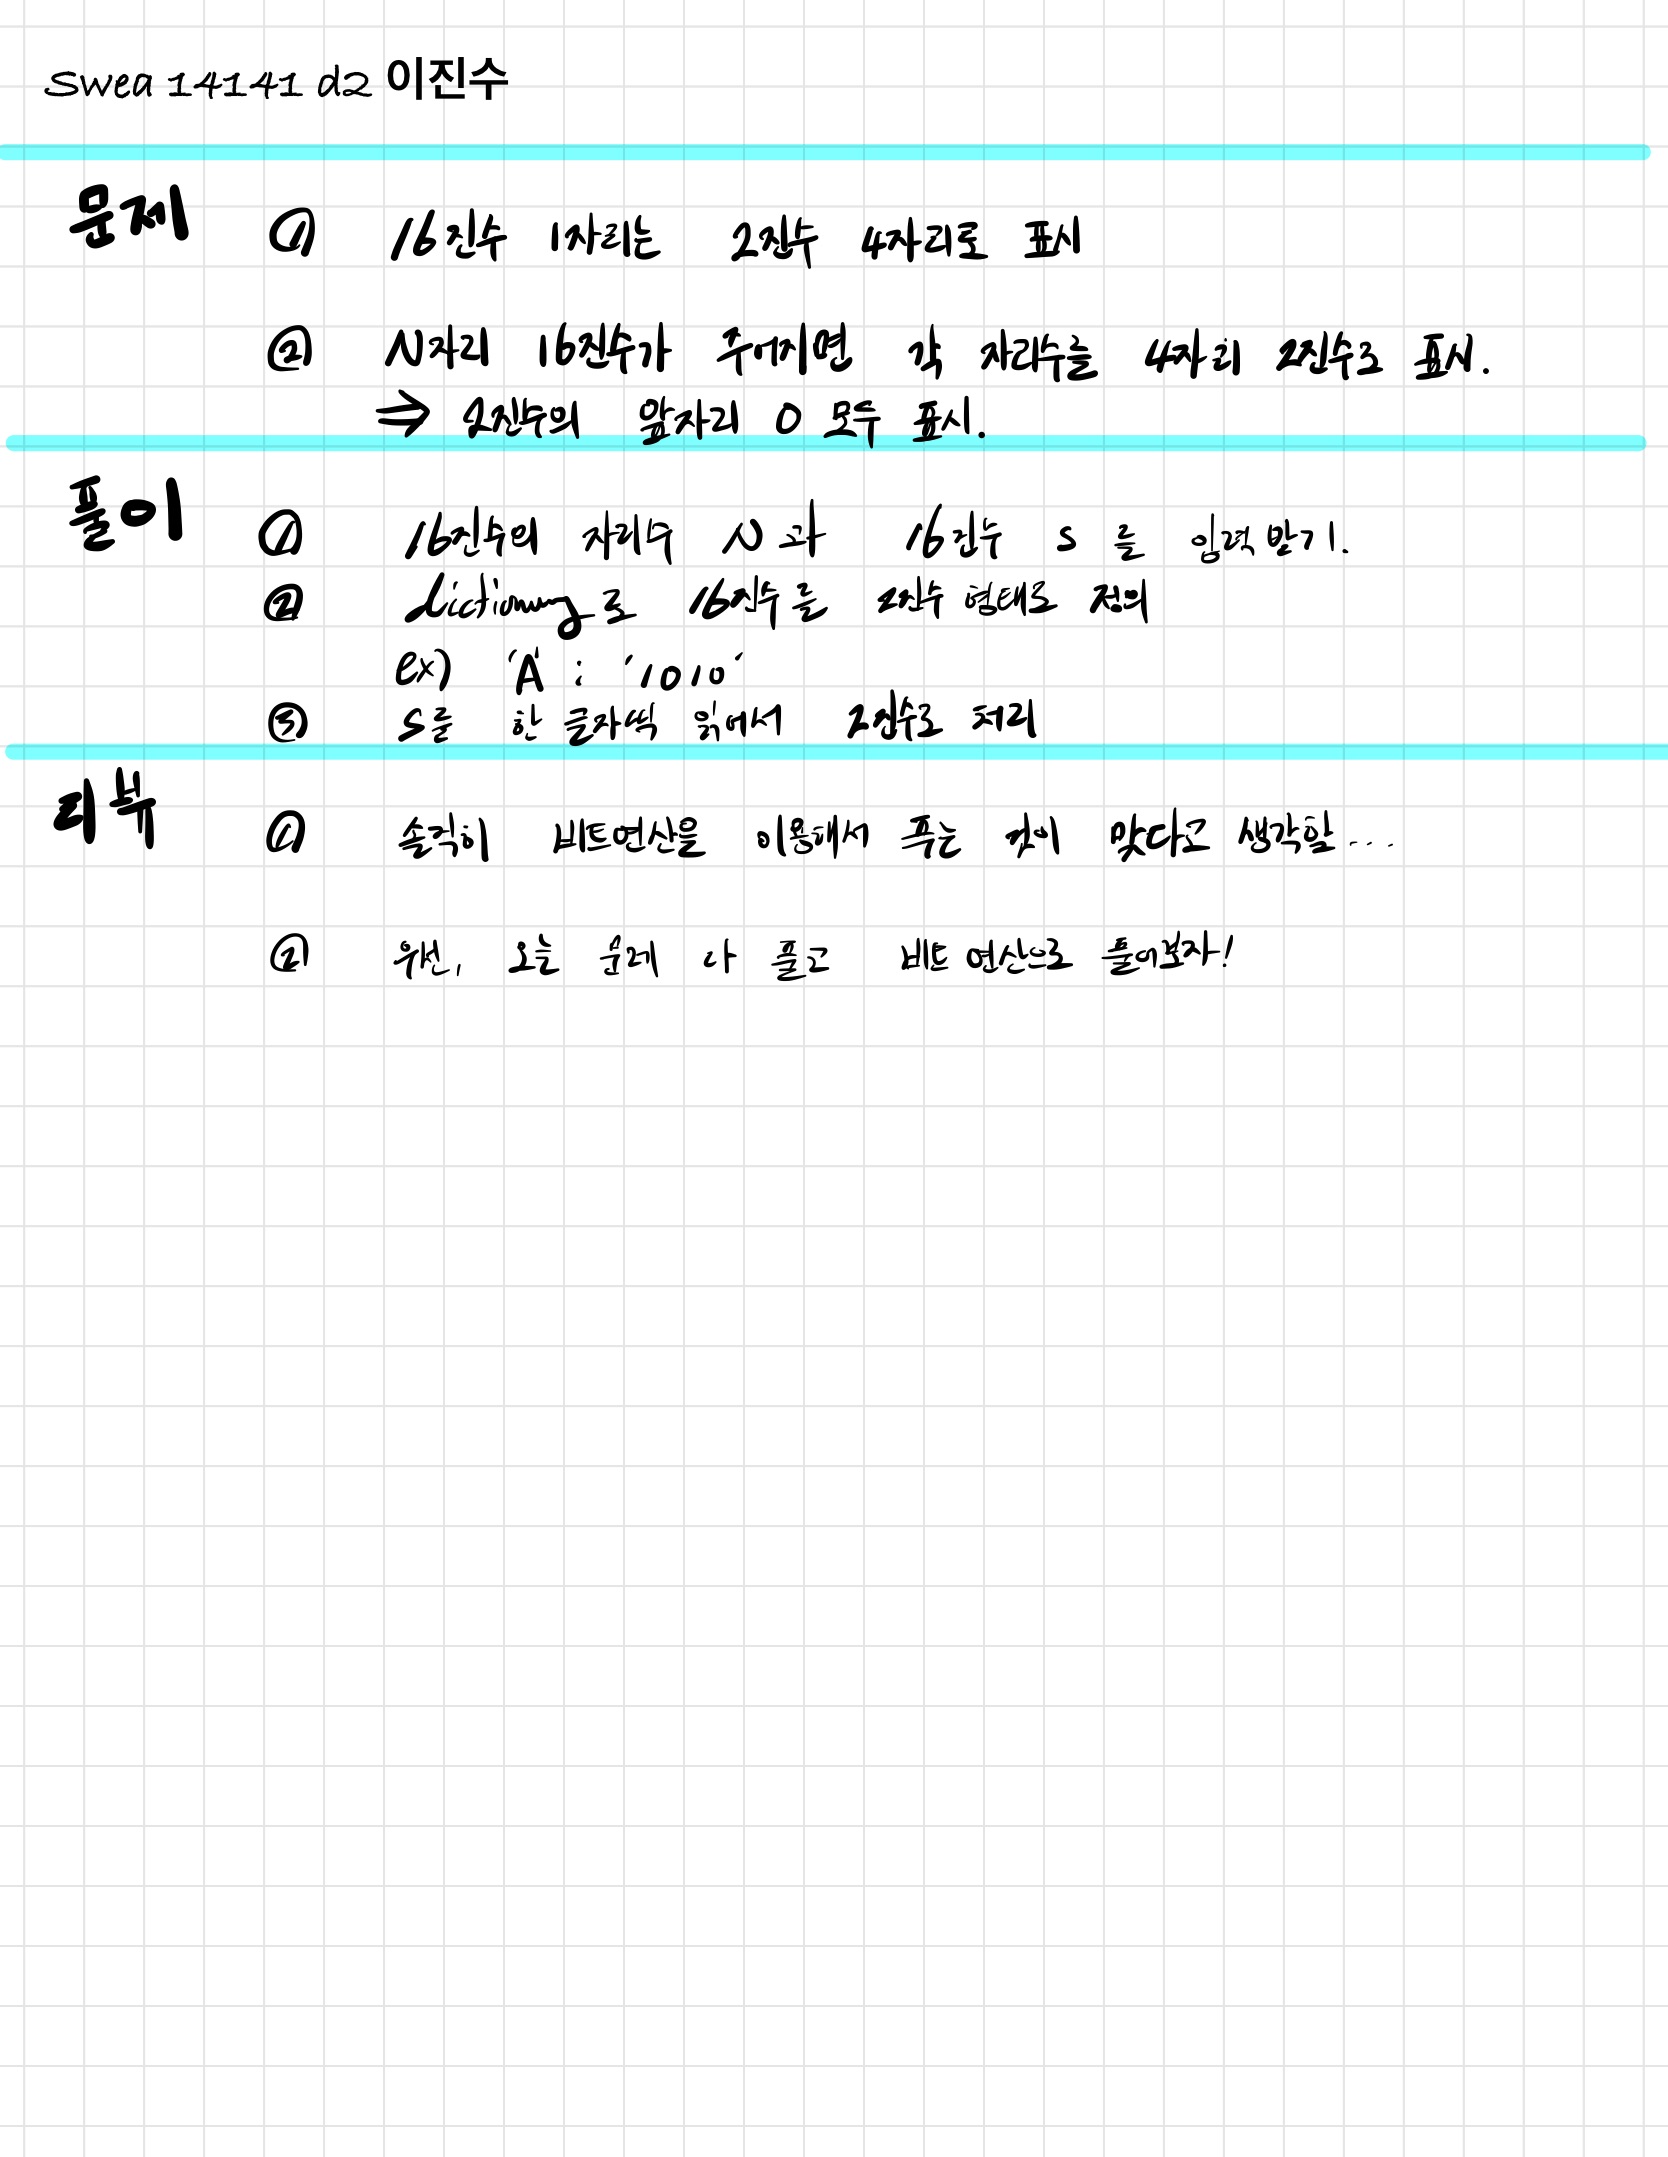 Swea 14141 d2 이진수
문제 ① 16진수 1자리는 2진수 4자리로 표시
② N자리 16진수가 주어지면 각 자리수를 4자리 2진수로 표시.
⇒ 2진수의 앞자리 0 모두 표시.
풀이 ① 16진수의 자리수 N과 16진수 s를 입력받기.
② dictionary로 16진수를 2진수 형태로 정의
ex) 'A' : '1010'
③ s를 한 글자씩 읽어서 2진수로 처리
리뷰 ① 솔직히 비트연산을 이용해서 푸는 것이 맞다고 생각함...
② 우선, 오늘 문제 다 풀고 비트 연산으로 풀어보자!